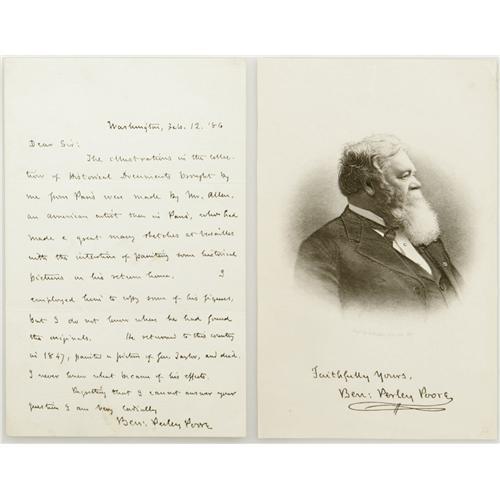 Washington, Feb. 12. '86
Dear Sir:
The illustrations in the collec-
tion of Historical Documents brought by
me from Paris were made by Mr. Allen,
an American artist then in Paris, who had
made a great many sketches at Versailles
with the intention of painting some historical
pictures on his return home. I
employed him to copy some of his figures,
but I do not know where he had found
the originals. He returned to this country
in 1847, painted a picture of Gen. Taylor, and died.
I never knew what became of his effects.
Regretting that I cannot answer your
question I am very cordially
Ben: Perley Poore
Faithfully Yours,
Ben: Perley Poore